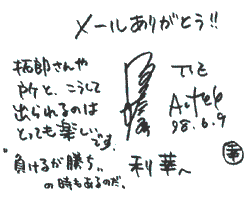 メールありがとう!!
拓郎さんや
所と、こうして
出られるのは
とっても楽しい
です。
"負けるが勝ち"
の時もあるのだ。
利華へ
98.6.9
華